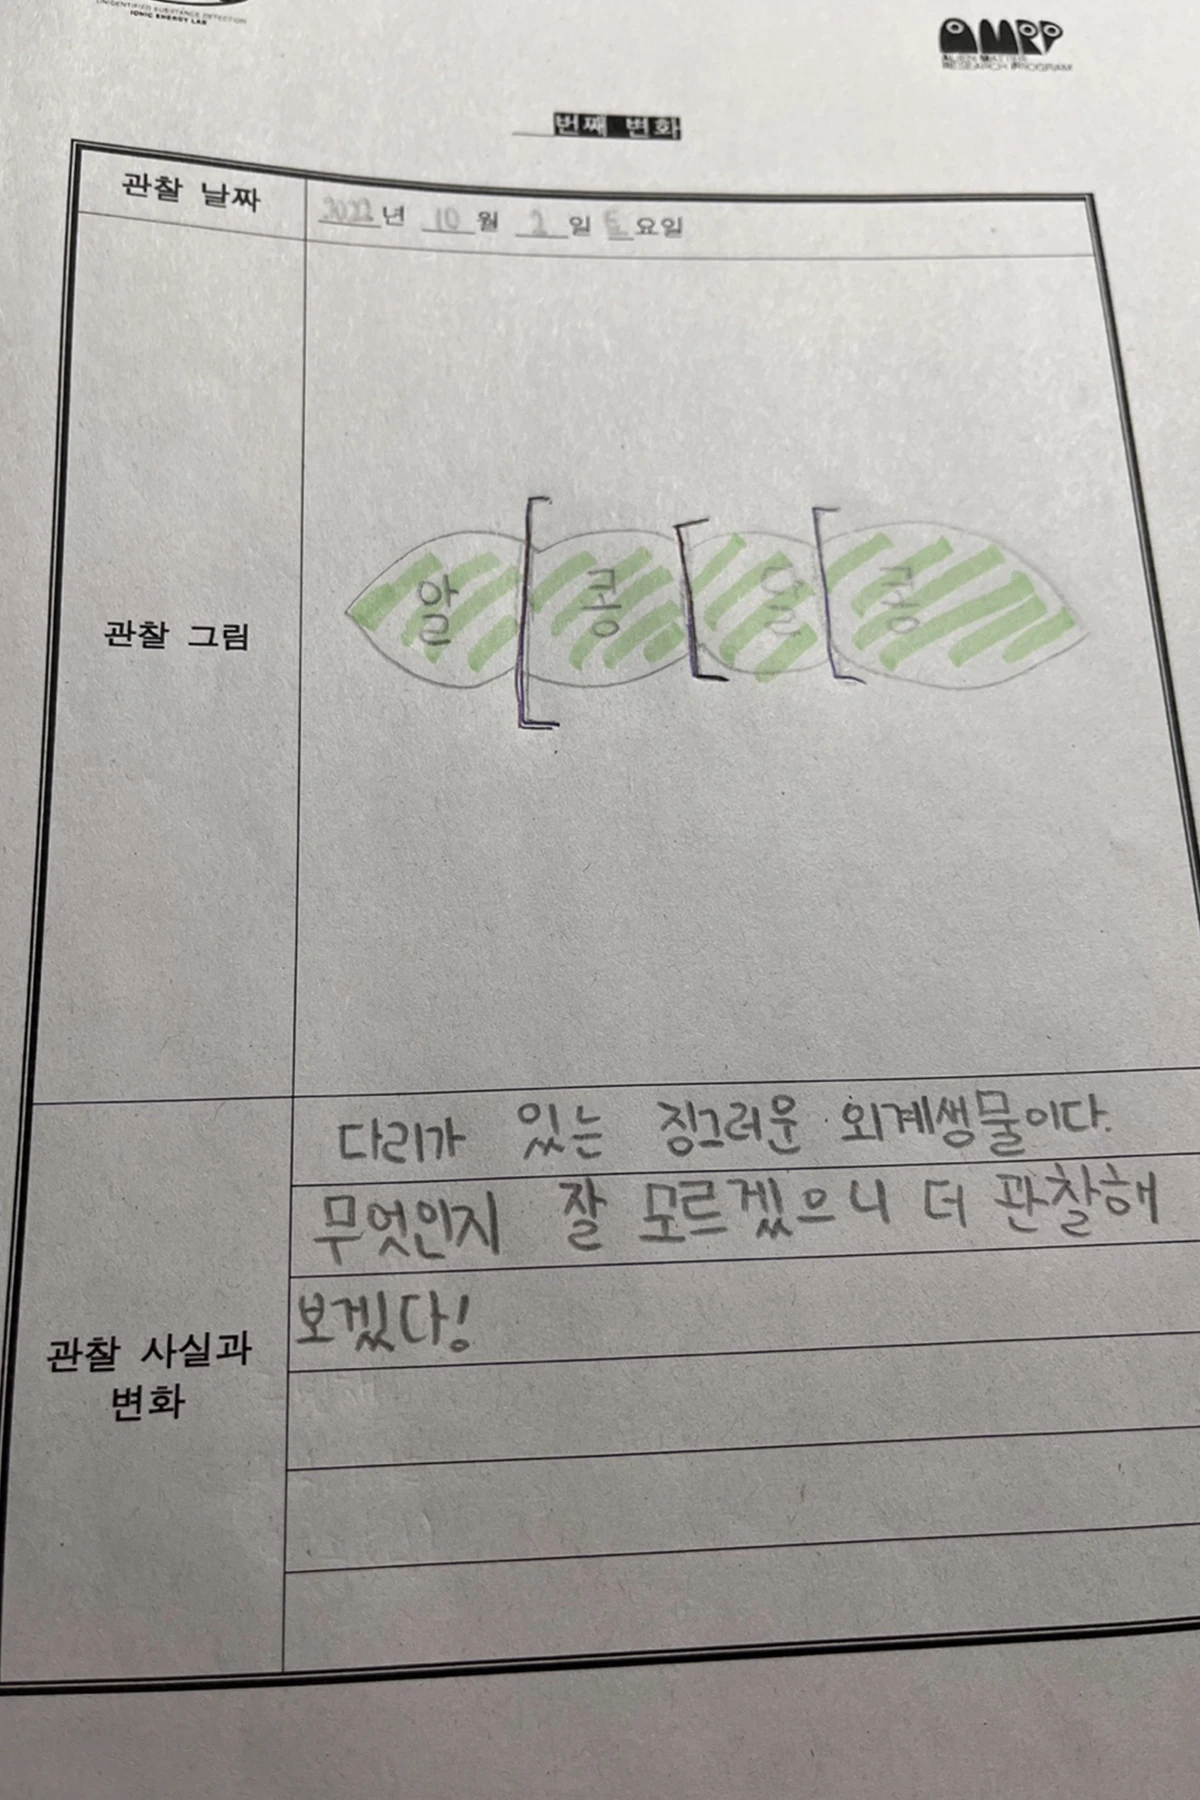 UNIDENTIFIED SUBSTANCE DETECTION
IONIC ENERGY LAB
AMRP
ALIEN MATTER
RESEARCH PROGRAM
번째 변화
관찰 날짜
2022년 10월 2일 요일
관찰 그림
알 콩 달 콩
다리가 있는 징그러운 외계생물이다.
무엇인지 잘 모르겠으니 더 관찰해
보겠다!
관찰 사실과
변화